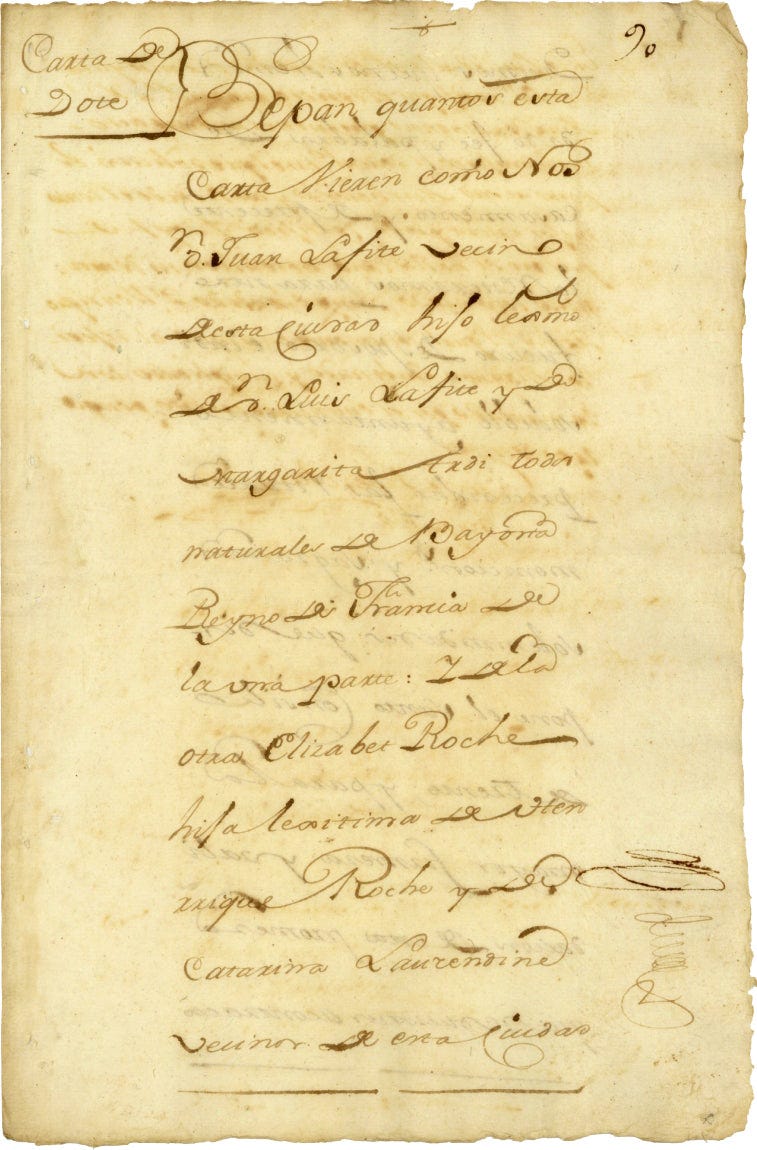 90
Carta de
Dote
Sepan quantos esta
Carta Vieren como Nos
Dn. Juan Lafite vecino
de esta Ciudad hijo lexmo
de Dn. Luis Lafite y de
Margarita Ardi todos
naturales de Bayona
Reyno de Francia de
la una parte: Y de la
otra Elizabet Roche
hija lexitima de Hen
rrique Roche y de
Catarina Laurendine
vecinos de esta Ciudad